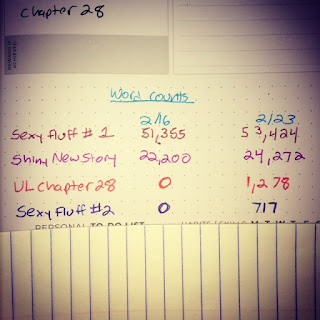 chapter 28
Word counts
2/16 2/23
Sexy Fluff # 1 51,355 53,424
Shiny New Story 22,200 24,272
UL Chapter 28 0 1,278
Sexy Fluff #2 0 717
PERSONAL TO-DO LIST